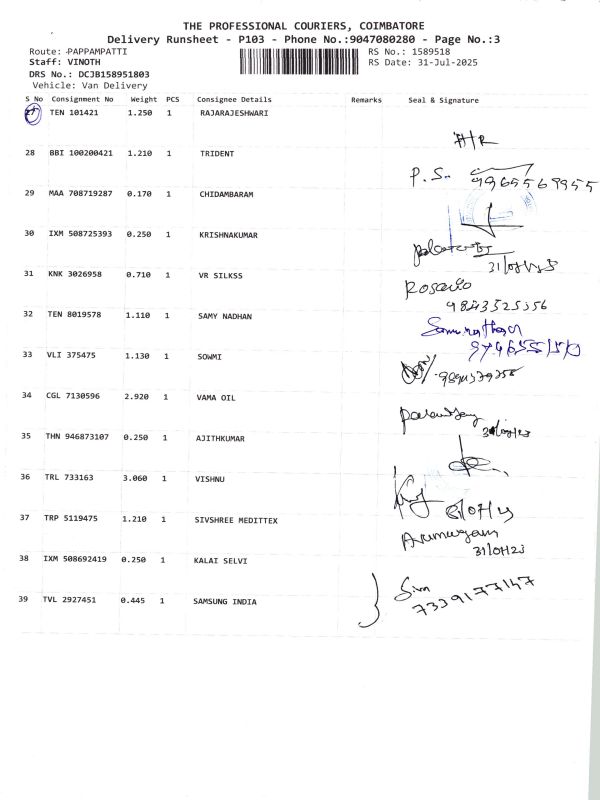 THE PROFESSIONAL COURIERS, COIMBATORE
Delivery Runsheet - P103 - Phone No.:9047080280 - Page No.:3
Route: PAPPAMPATTI RS No.: 1589518
Staff: VINOTH RS Date: 31-Jul-2025
DRS No.: DCJB158951803
Vehicle: Van Delivery
S No Consignment No Weight PCS Consignee Details Remarks Seal & Signature
27 TEN 101421 1.250 1 RAJARAJESHWARI
28 BBI 100200421 1.210 1 TRIDENT
P.S. 9965569955
29 MAA 708719287 0.170 1 CHIDAMBARAM
30 IXM 508725393 0.250 1 KRISHNAKUMAR
31 KNK 3026958 0.710 1 VR SILKSS
Rosario
9843525356
32 TEN 8019578 1.110 1 SAMY NADHAN
33 VLI 375475 1.130 1 SOWMI
34 CGL 7130596 2.920 1 VAMA OIL
35 THN 946873107 0.250 1 AJITHKUMAR
36 TRL 733163 3.060 1 VISHNU
37 TRP 5119475 1.210 1 SIVSHREE MEDITTEX
Arumugam
38 IXM 508692419 0.250 1 KALAI SELVI
39 TVL 2927451 0.445 1 SAMSUNG INDIA
7339177147